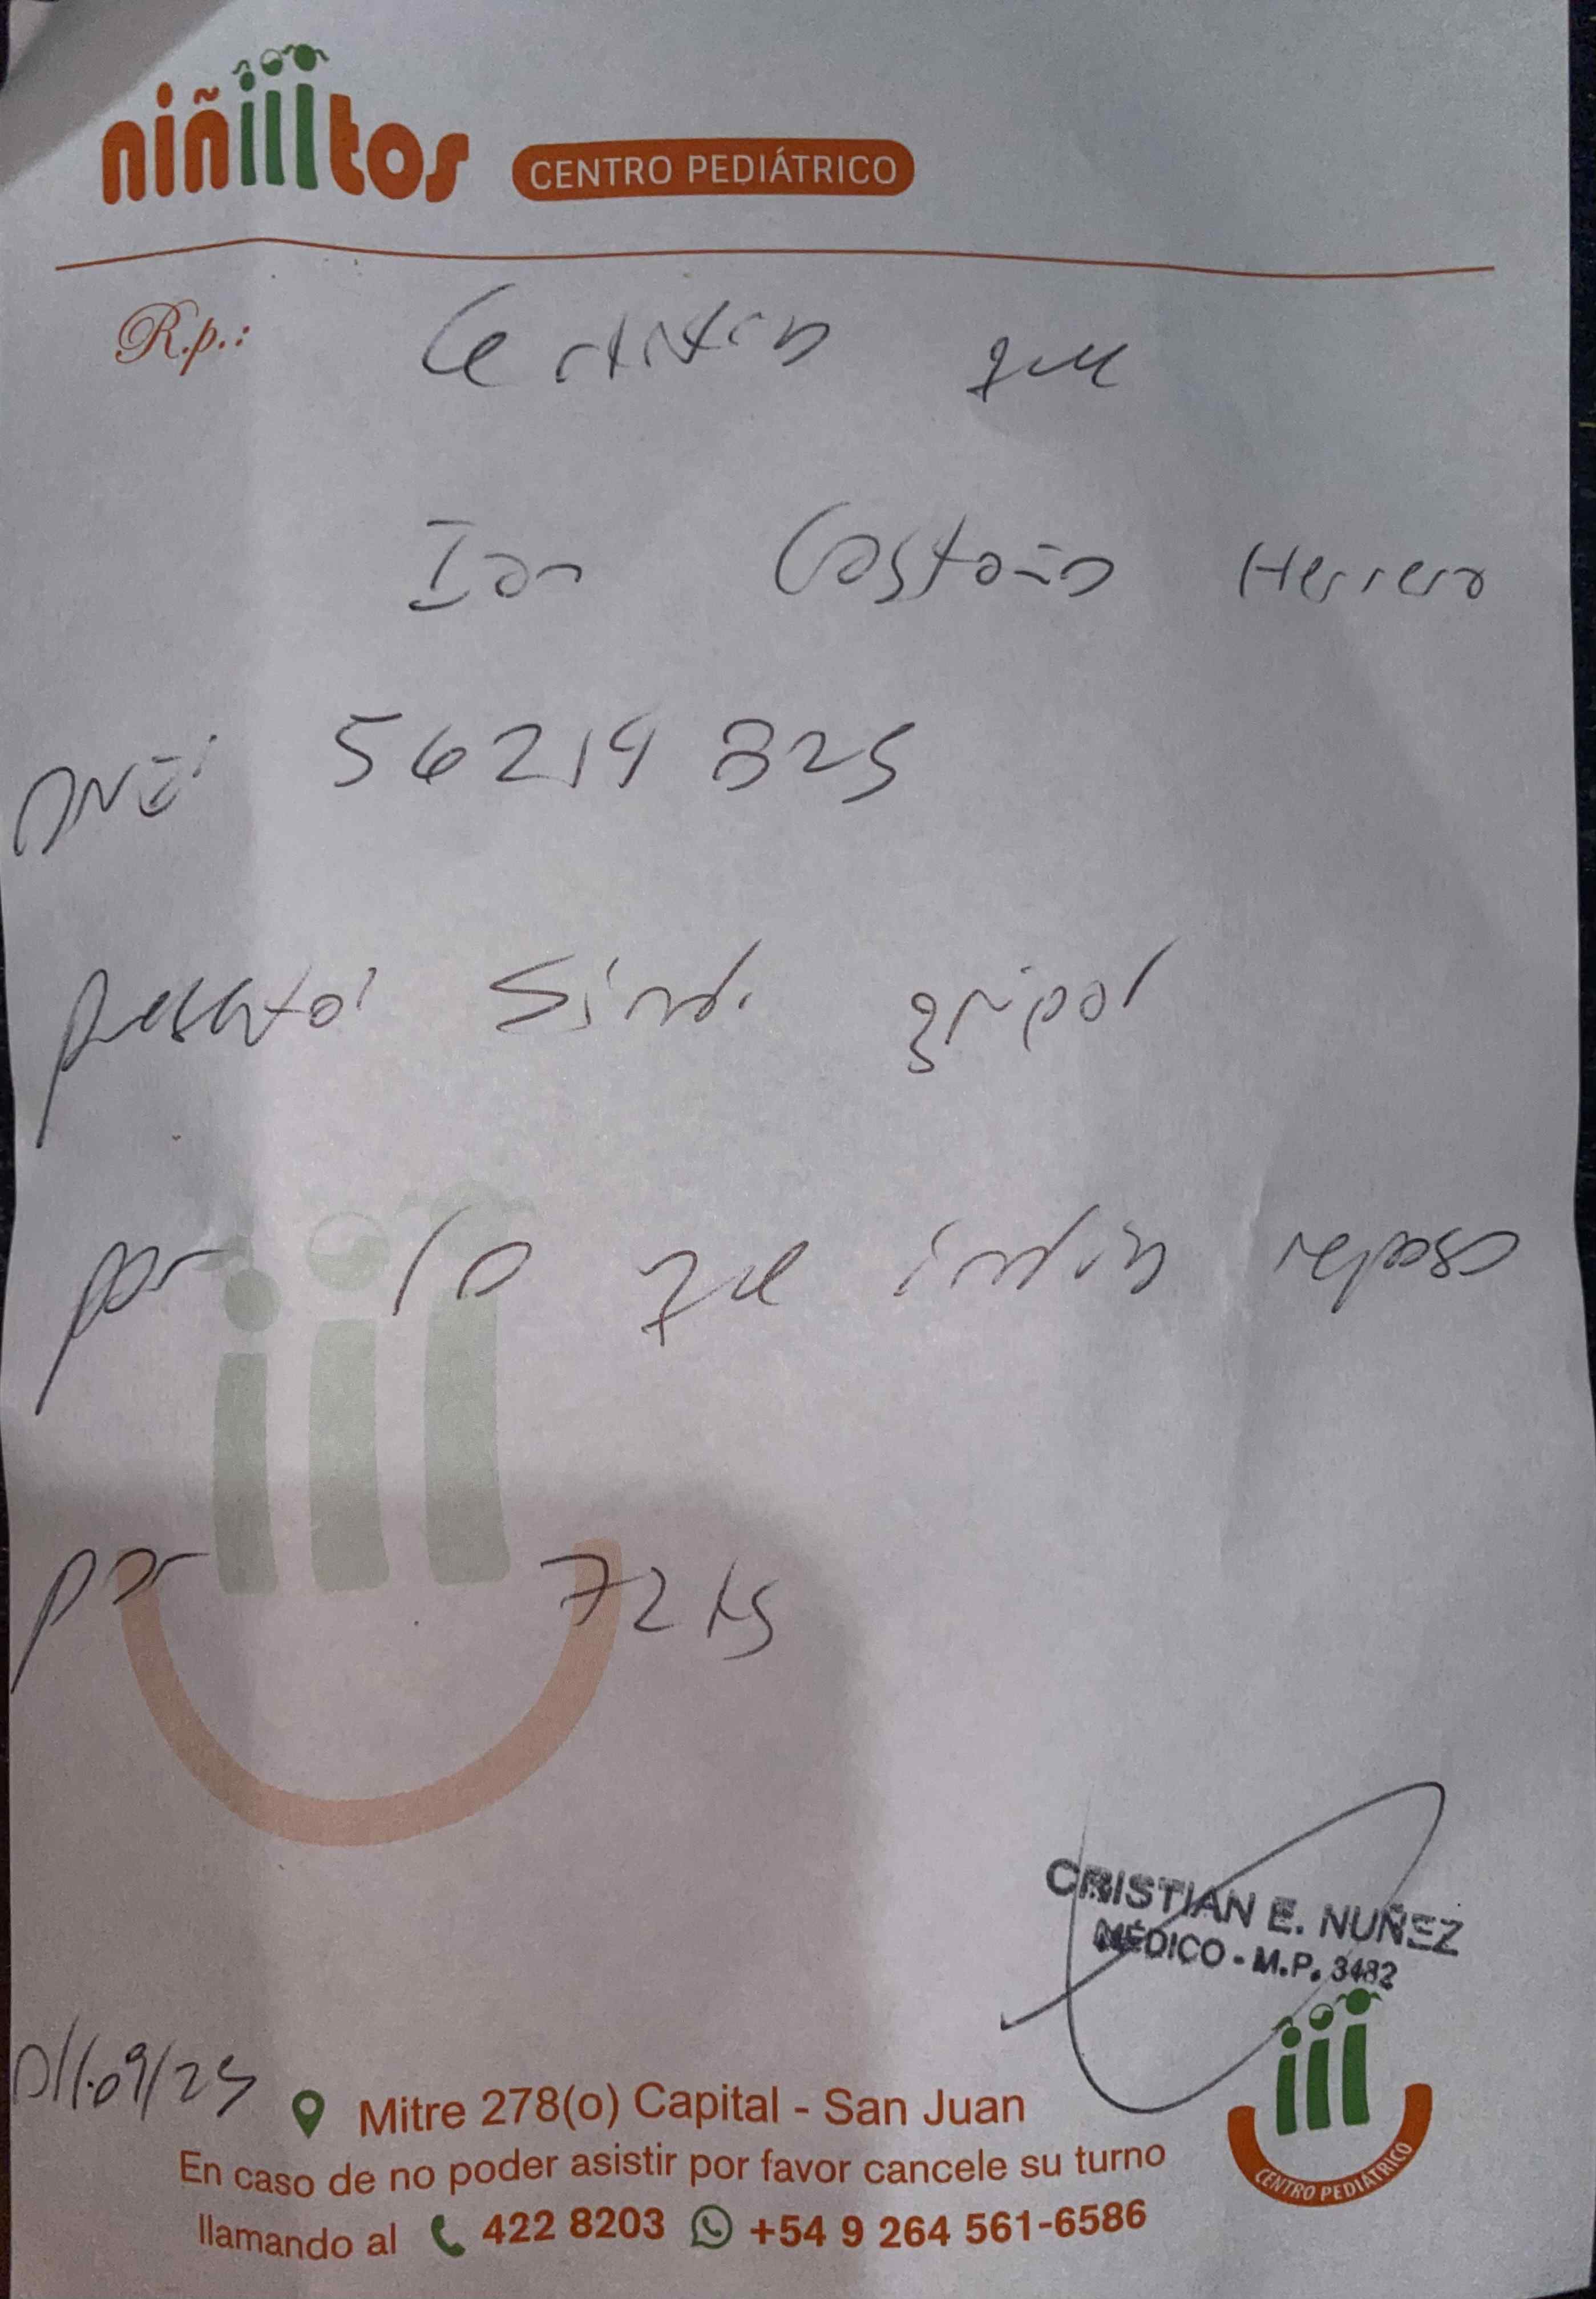 niñiiitos CENTRO PEDIÁTRICO
R.p.: Certifico que
Ian Castaño Herrero
DNI: 56219825
presentó Sind. gripal
por lo que indico reposo
por 72 hs
CRISTIAN E. NUÑEZ
MÉDICO - M.P. 3482
01/09/25
Mitre 278(o) Capital - San Juan
En caso de no poder asistir por favor cancele su turno
llamando al 422 8203 +54 9 264 561-6586
CENTRO PEDIATRICO